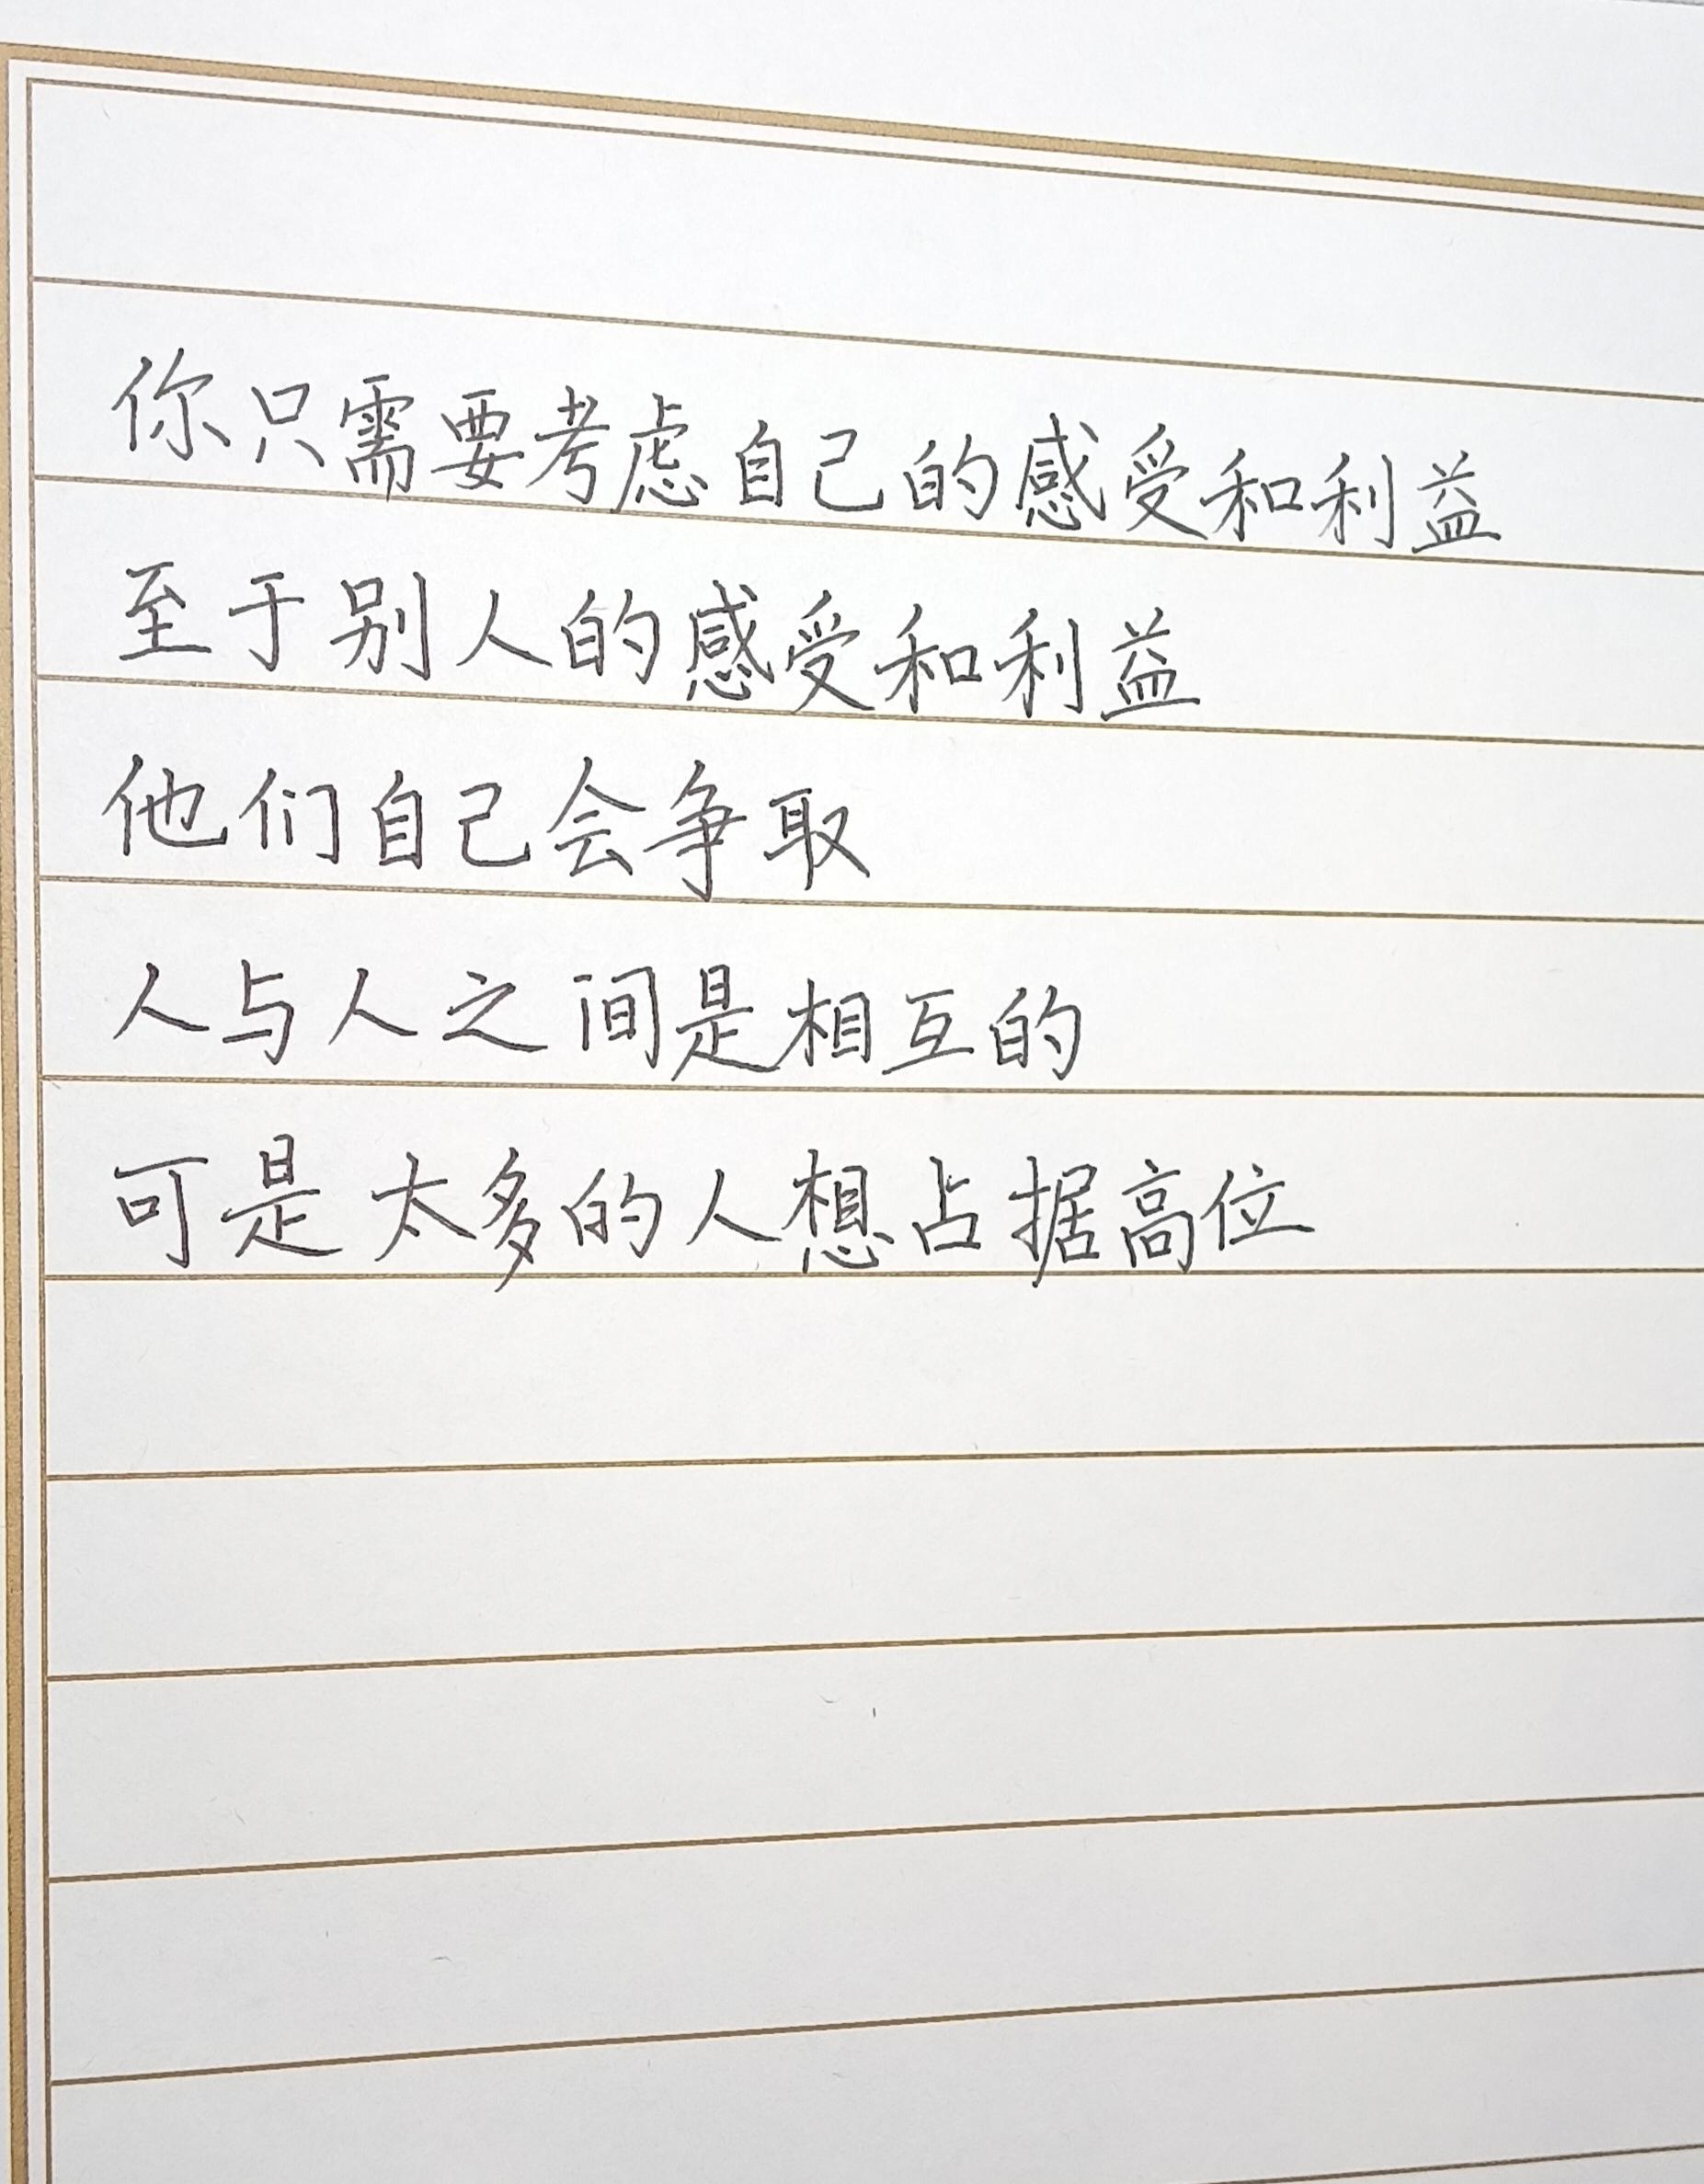 你只需要考虑自己的感受和利益
至于别人的感受和利益
他们自己会争取
人与人之间是相互的
可是太多的人想占据高位